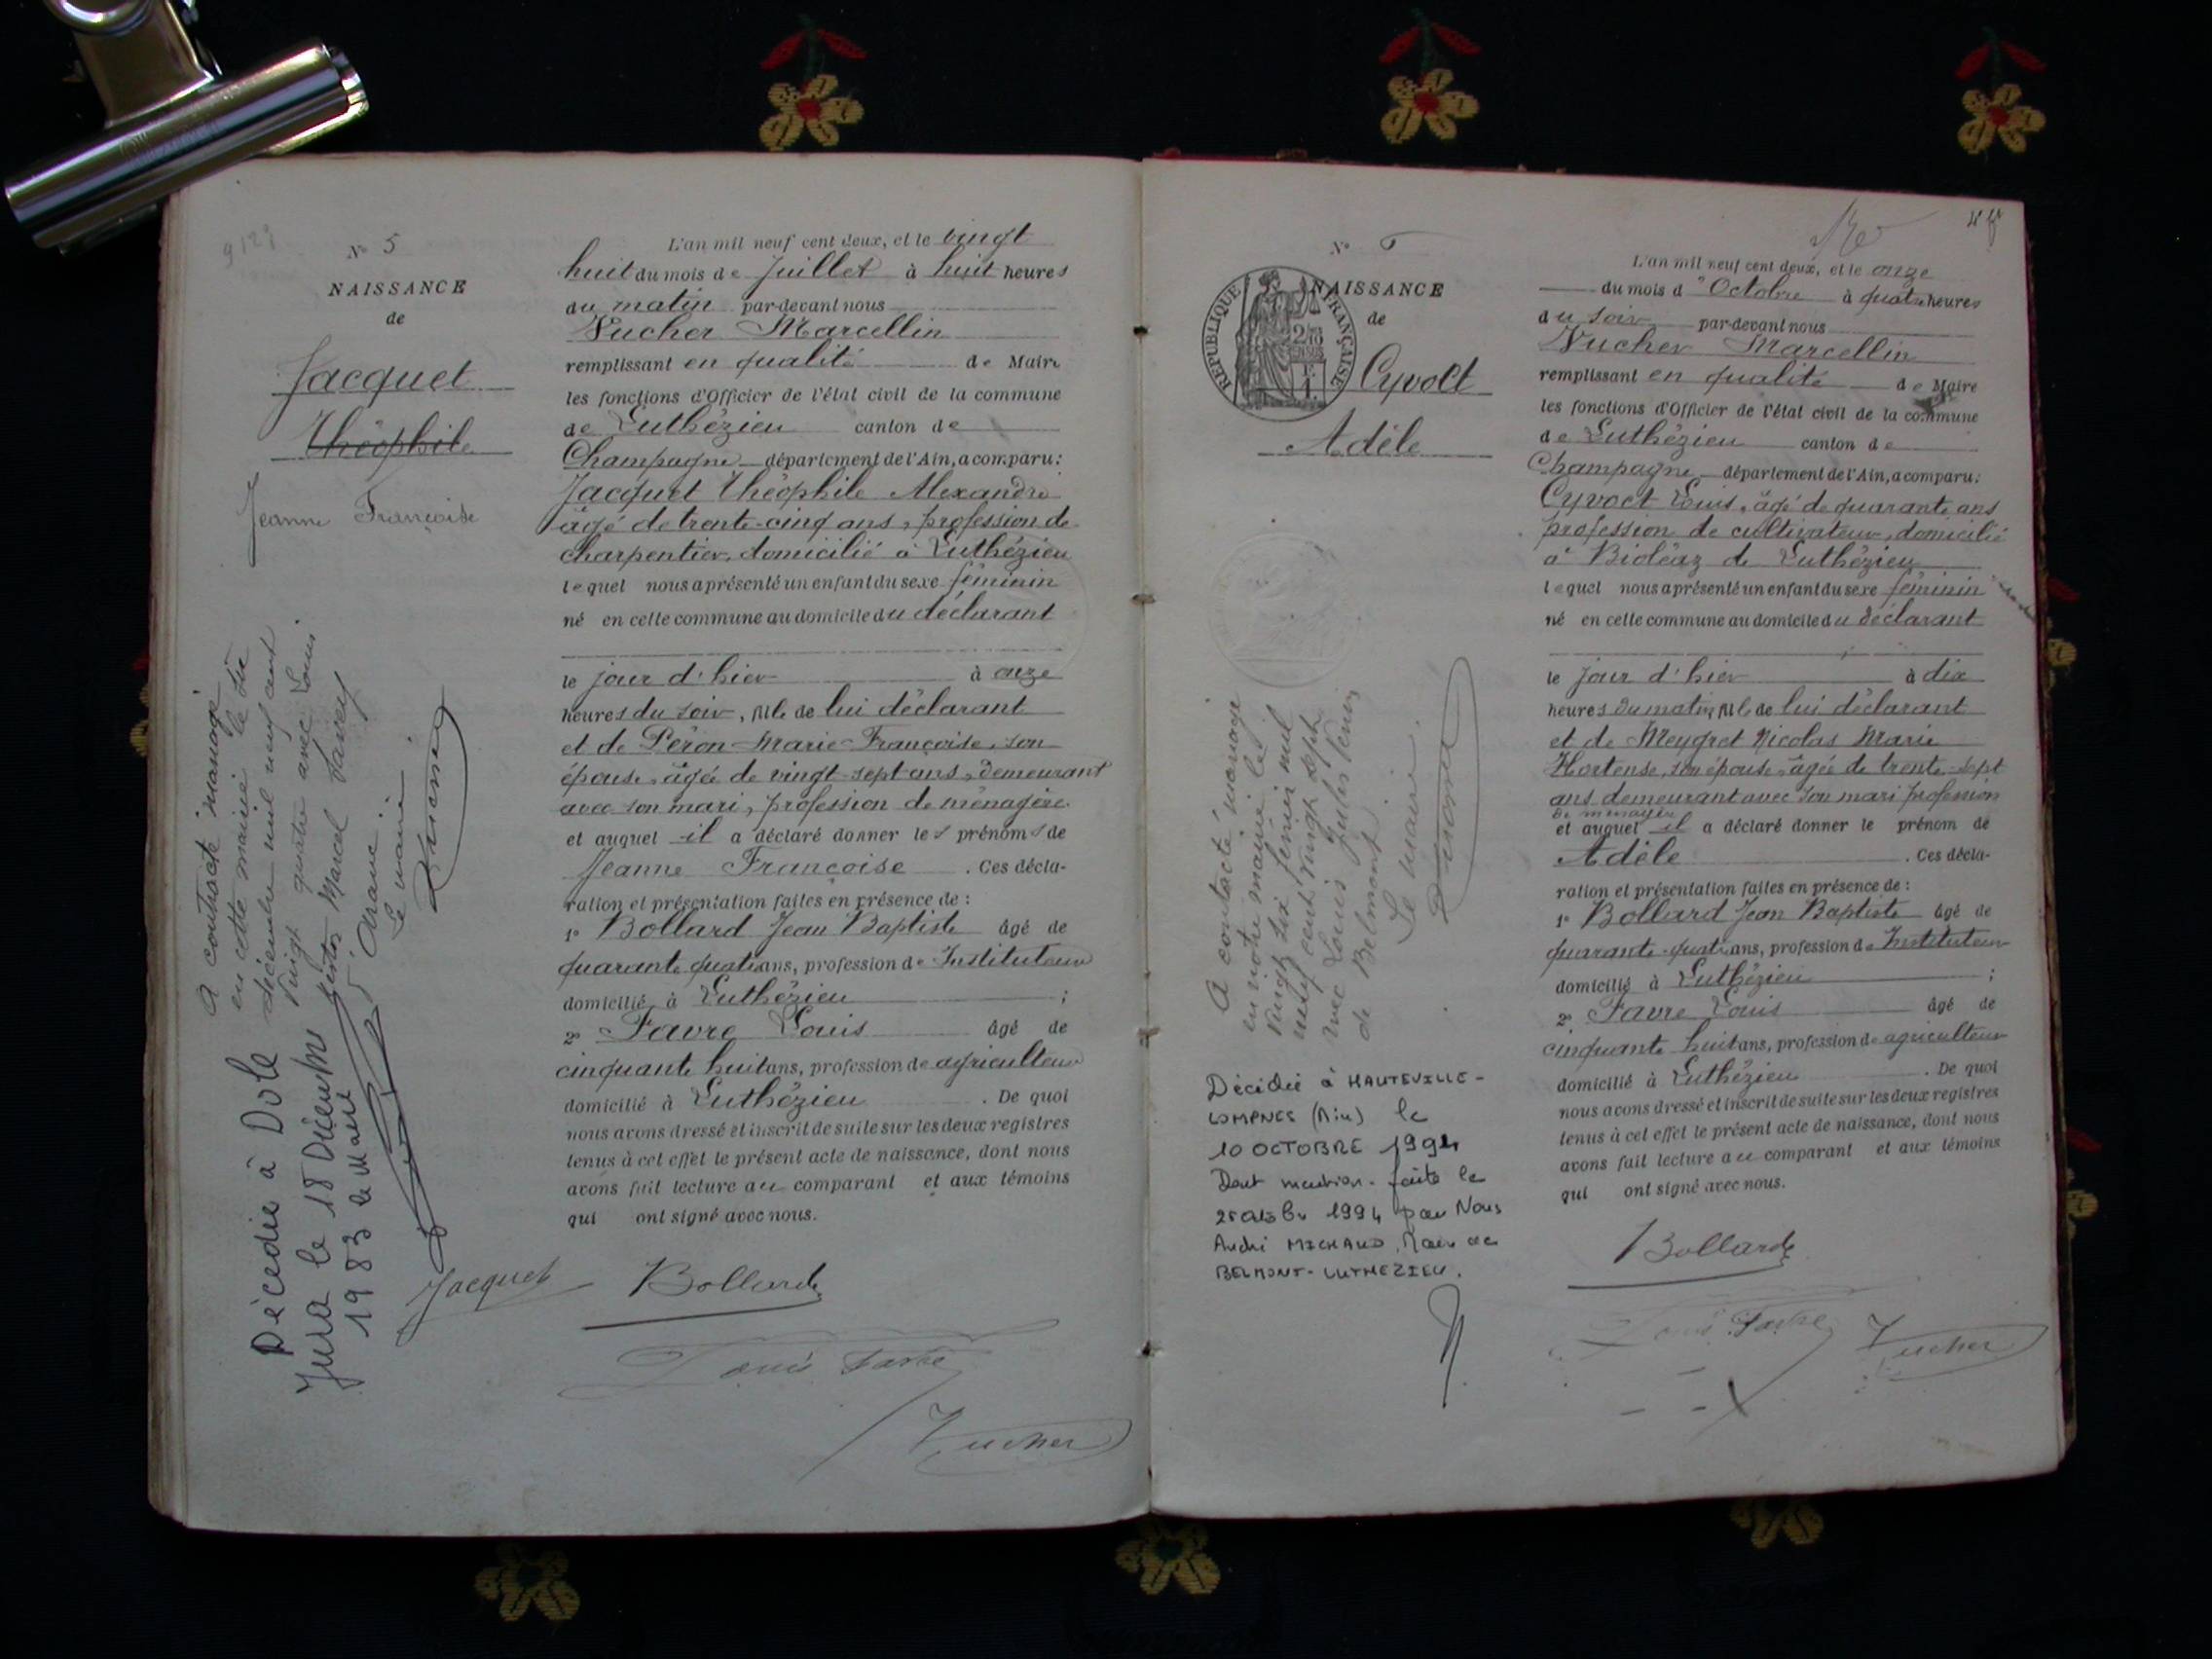 N° 5
NAISSANCE
de
Jacquet
Théophile
Jeanne Françoise
A contracté mariage
en cette mairie le six
décembre mil neuf cent
vingt quatre avec Louis
Marcel
d'Aranc
Le maire
Décédée à Dole
Jura le 18 Décembre
1983 le Maire
L'an mil neuf cent deux, et le vingt
huit du mois de Juillet à huit heures
du matin par-devant nous
Vucher Marcellin
remplissant en qualité de Maire
les fonctions d'Officier de l'état civil de la commune
de Luthézieu canton de
Champagne département de l'Ain, a comparu :
Jacquet Théophile Alexandre
âgé de trente-cinq ans, profession de
charpentier, domicilié à Luthézieu
lequel nous a présenté un enfant du sexe féminin
né en cette commune au domicile du déclarant
le jour d'hier à onze
heures du soir, fille de lui déclarant
et de Péron Marie Françoise, son
épouse, âgée de vingt sept ans, demeurant
avec son mari, profession de ménagère
et auquel il a déclaré donner les prénoms de
Jeanne Françoise . Ces décla-
ration et présentation faites en présence de :
1° Bollard Jean Baptiste âgé de
quarante quatre ans, profession de Instituteur
domicilié à Luthézieu ;
2° Favre Louis âgé de
cinquante huit ans, profession de agriculteur
domicilié à Luthézieu . De quoi
nous avons dressé et inscrit de suite sur les deux registres
tenus à cet effet le présent acte de naissance, dont nous
avons fait lecture au comparant et aux témoins
qui ont signé avec nous.
Jacquet Bollard
Louis Favre
Vucher
N° 6
NAISSANCE
de
REPUBLIQUE FRANÇAISE
Cyvoct
Adèle
A contracté mariage
en notre mairie le
vingt six février mil
neuf cent vingt sept
avec Louis Jules
de Belmont
Le maire
Décédée à HAUTEVILLE-
LOMPNES (Ain) le
10 OCTOBRE 1994
Dont mention faite le
25 octobre 1994 par Nous
André MICHAUD, Maire de
BELMONT-LUTHEZIEU.
L'an mil neuf cent deux, et le onze
du mois d'Octobre à quatre heures
du soir par-devant nous
Vucher Marcellin
remplissant en qualité de Maire
les fonctions d'Officier de l'état civil de la commune
de Luthézieu canton de
Champagne département de l'Ain, a comparu :
Cyvoct Louis, âgé de quarante ans
profession de cultivateur, domicilié
à Bioléaz de Luthézieu
lequel nous a présenté un enfant du sexe féminin
né en cette commune au domicile du déclarant
le jour d'hier à dix
heures du matin, fille de lui déclarant
et de Meygret Nicolas Marie
Hortense, son épouse, âgée de trente-sept
ans demeurant avec son mari profession
de ménagère
et auquel il a déclaré donner le prénom de
Adèle . Ces décla-
ration et présentation faites en présence de :
1° Bollard Jean Baptiste âgé de
quarante-quatre ans, profession de Instituteur
domicilié à Luthézieu ;
2° Favre Louis âgé de
cinquante huit ans, profession de agriculteur
domicilié à Luthézieu . De quoi
nous avons dressé et inscrit de suite sur les deux registres
tenus à cet effet le présent acte de naissance, dont nous
avons fait lecture au comparant et aux témoins
qui ont signé avec nous.
Bollard
Louis Favre Vucher